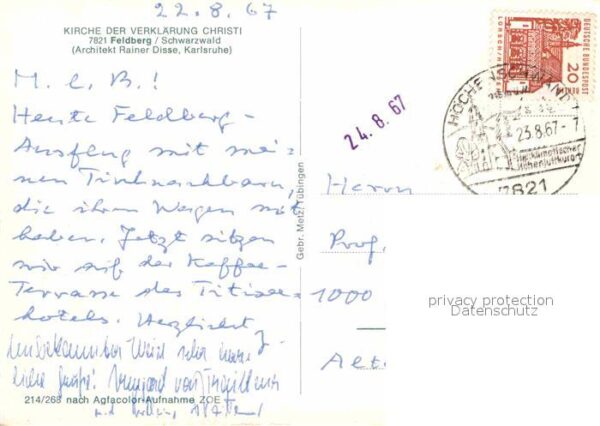 22.8.67
KIRCHE DER VERKLÄRUNG CHRISTI
7821 Feldberg / Schwarzwald
(Architekt Rainer Disse, Karlsruhe)
M. l. B.!
Heute Feldberg-
Ausflug mit mei-
nen Tischnachbarn,
die ihren Wagen mit
haben. Jetzt sitzen
wir auf der Kaffee-
Terrasse des Titisee-
hotels. Herzlichst
Unbekannter Weise sehr herz-
liche Grüße! Irmgard von
214/268 nach Agfacolor-Aufnahme ZOE
Gebr. Metz, Tübingen
24.8.67
DEUTSCHE BUNDESPOST
20
LORSCH/HESSEN
HÖCHENSCHWAND
23.8.67-7
Heilklimatischer
Höhenluftkurort
7821
Herrn
Prof.
1000
Alt
privacy protection
Datenschutz